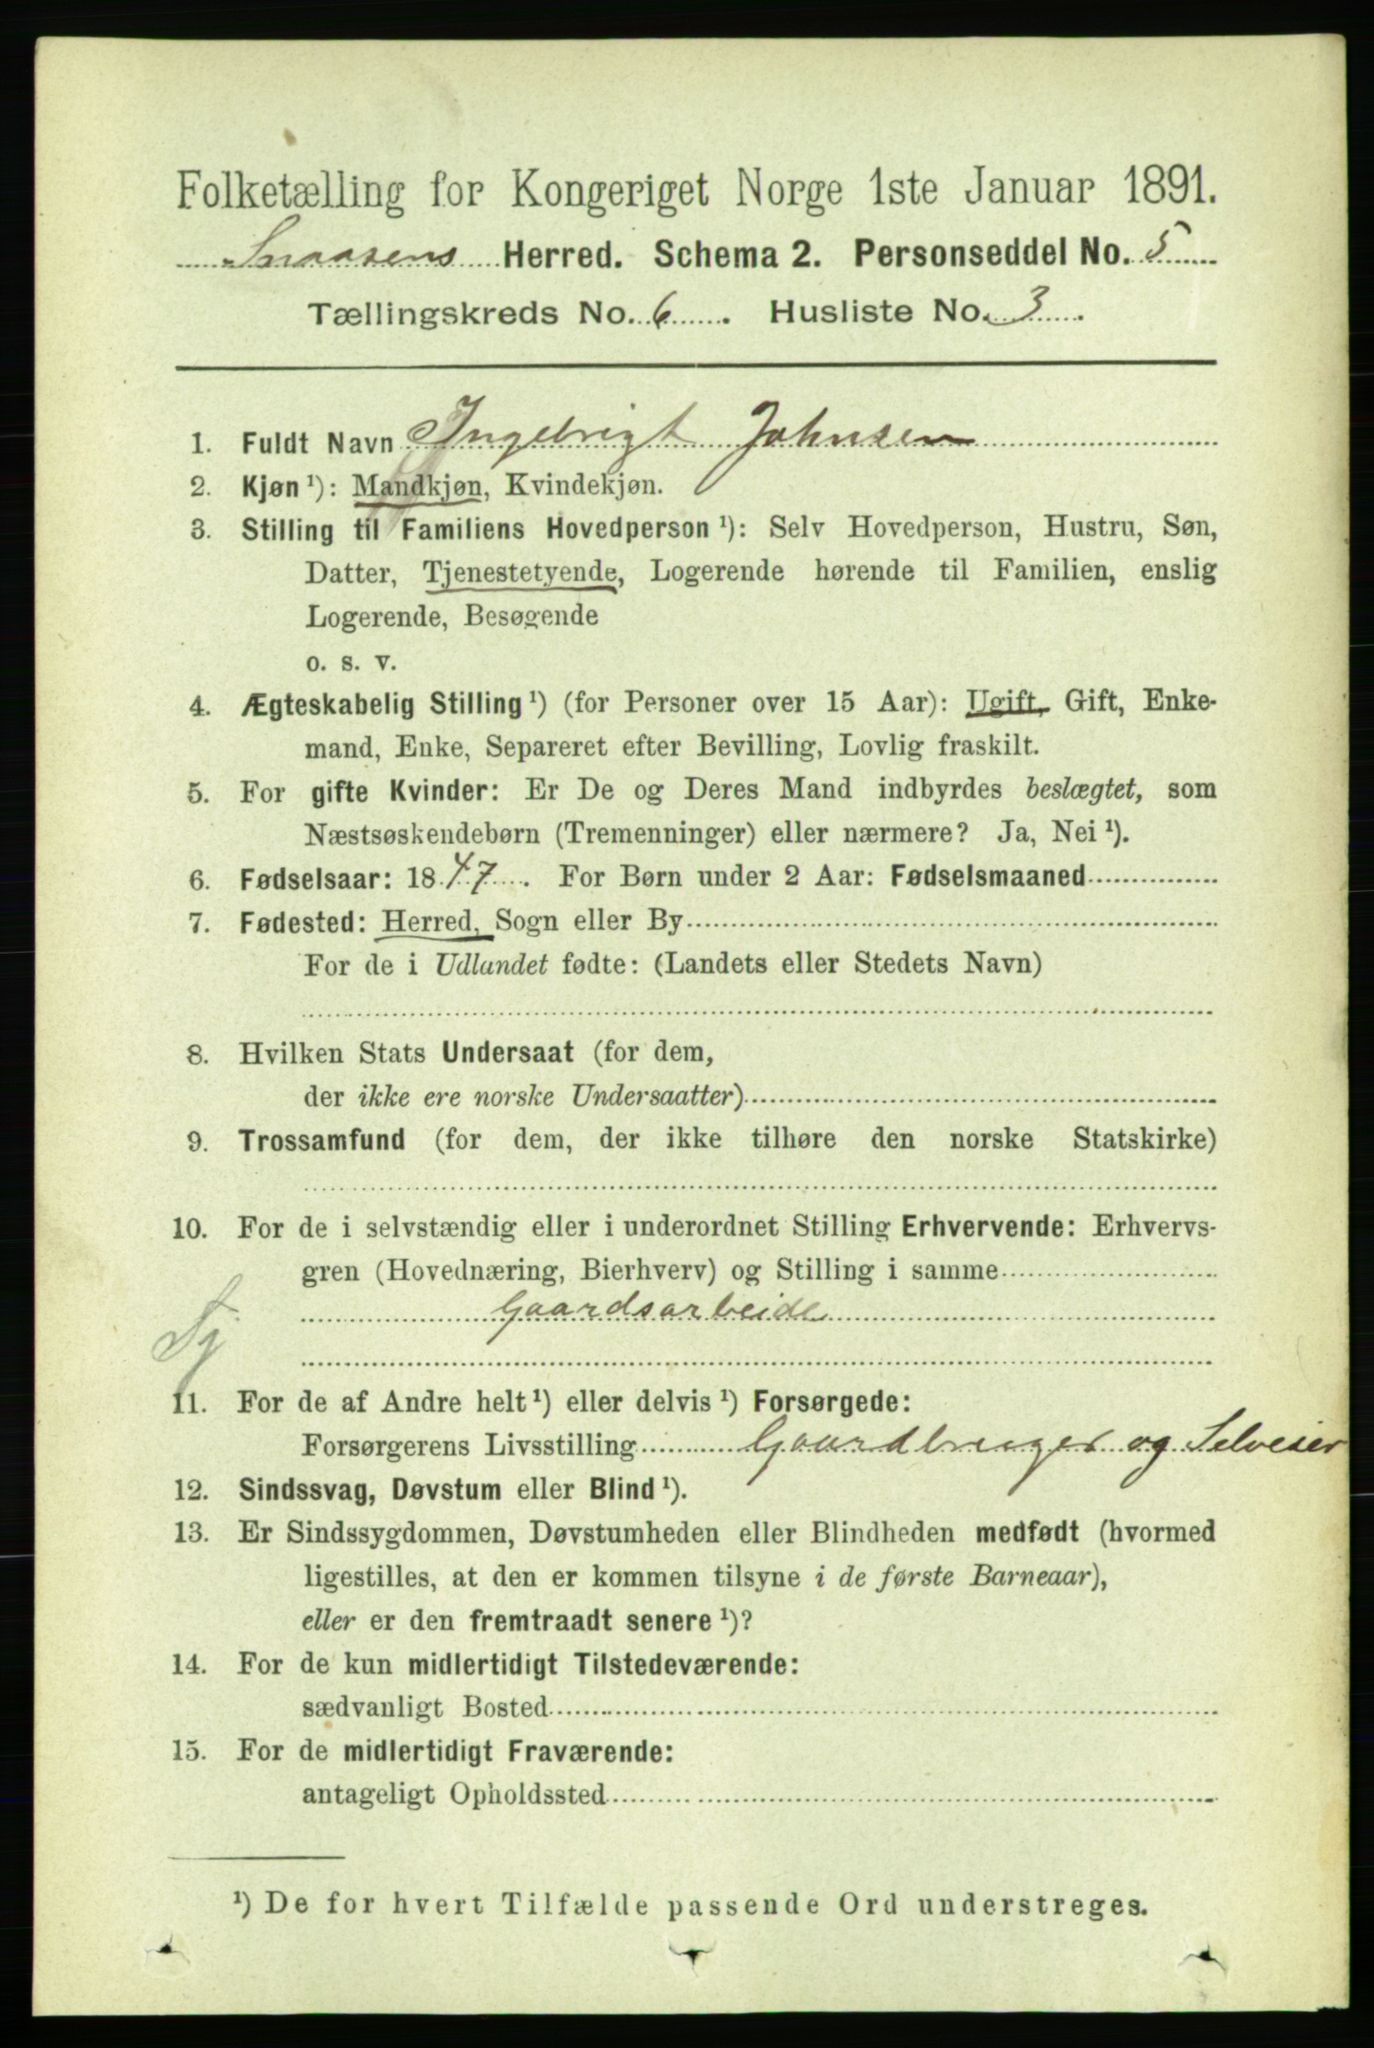 Folketælling for Kongeriget Norge 1ste Januar 1891.
Snaasens Herred. Schema 2. Personseddel No. 5
Tællingskreds No. 6. Husliste No. 3.
1. Fuldt Navn Ingebrigt Johnsen
2. Kjøn ¹): Mandkjøn, Kvindekjøn.
3. Stilling til Familiens Hovedperson ¹): Selv Hovedperson, Hustru, Søn,
Datter, Tjenestetyende, Logerende hørende til Familien, enslig
Logerende, Besøgende
o. s. v.
4. Ægteskabelig Stilling ¹) (for Personer over 15 Aar): Ugift, Gift, Enke-
mand, Enke, Separeret efter Bevilling, Lovlig fraskilt.
5. For gifte Kvinder: Er De og Deres Mand indbyrdes beslægtet, som
Næstsøskendebørn (Tremenninger) eller nærmere? Ja, Nei ¹).
6. Fødselsaar: 1847. For Børn under 2 Aar: Fødselsmaaned
7. Fødested: Herred, Sogn eller By
For de i Udlandet fødte: (Landets eller Stedets Navn)
8. Hvilken Stats Undersaat (for dem,
der ikke ere norske Undersaatter)
9. Trossamfund (for dem, der ikke tilhøre den norske Statskirke)
10. For de i selvstændig eller i underordnet Stilling Erhvervende: Erhvervs-
gren (Hovednæring, Bierhverv) og Stilling i samme
Gaardsarbeide
Tj
11. For de af Andre helt ¹) eller delvis ¹) Forsørgede:
Forsørgerens Livsstilling Gaardbruger og Selveier
12. Sindssvag, Døvstum eller Blind ¹).
13. Er Sindssygdommen, Døvstumheden eller Blindheden medfødt (hvormed
ligestilles, at den er kommen tilsyne i de første Barneaar),
eller er den fremtraadt senere ¹)?
14. For de kun midlertidigt Tilstedeværende:
sædvanligt Bosted
15. For de midlertidigt Fraværende:
antageligt Opholdssted
¹) De for hvert Tilfælde passende Ord understreges.